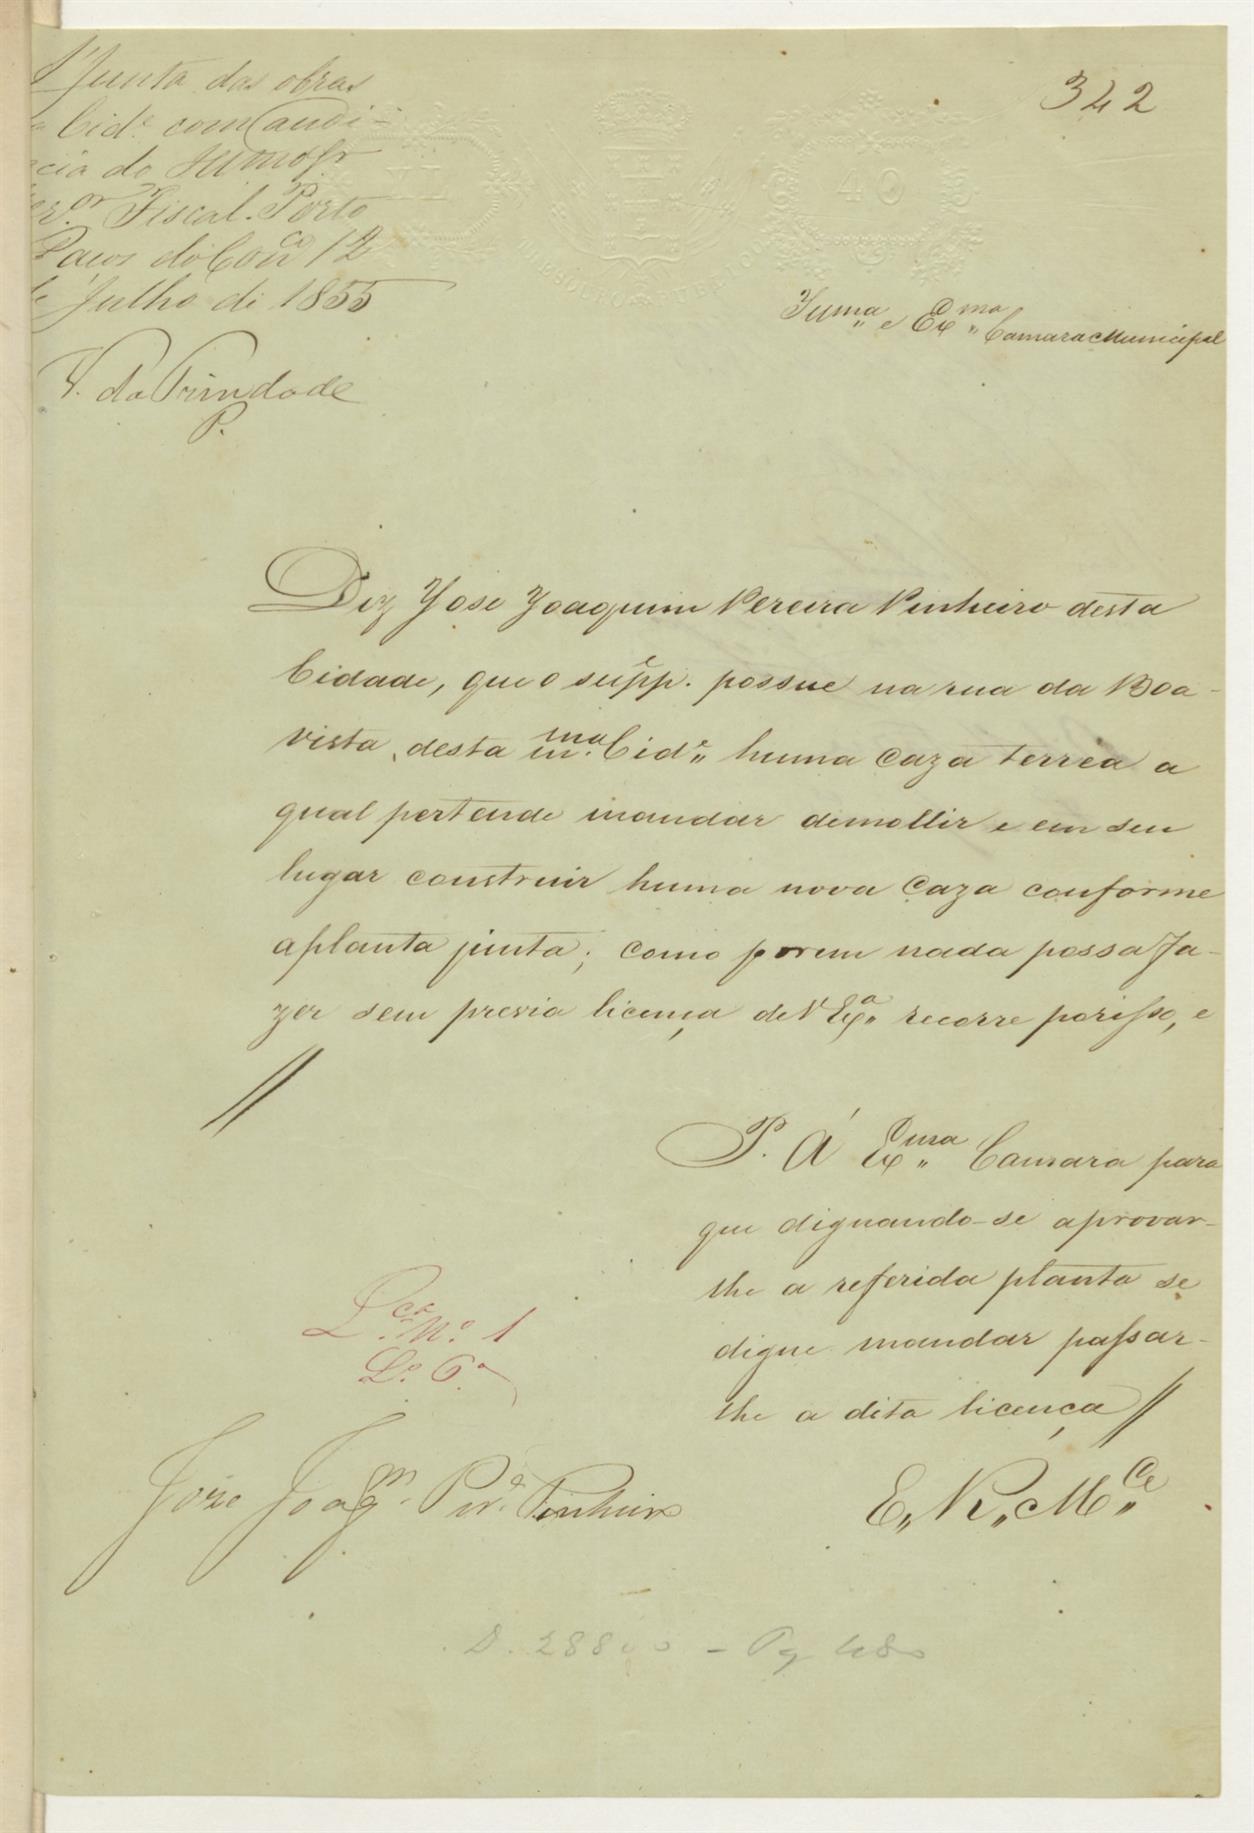 342
Junta das obras
Cid.e com audi-
cia do Illmo Sr
er.or Fiscal. Porto
Paços do Conc.o 12
de Julho de 1855
V. da Trindade
P.
40
Illma e Exma Camara Municipal
Diz Jose Joaquim Pereira Pinheiro desta
Cidade, que o supp.e possue na rua da Boa-
vista, desta m.ma Cid.e huma caza terrea a
qual pertende mandar demollir e em seu
lugar construir huma nova caza conforme
aplanta junta; como porem nada possa fa-
zer sem previa licença de V Exa recorre porisso, e
P. Á Exma Camara para
que dignando-se aprovar-
lhe a referida planta se
digne mandar passar-
lhe a dita licença //
L.ca N.o 1
L.o 6.o
E,, R,, M.ce
Joze Joaq.m Per.a Pinheiro